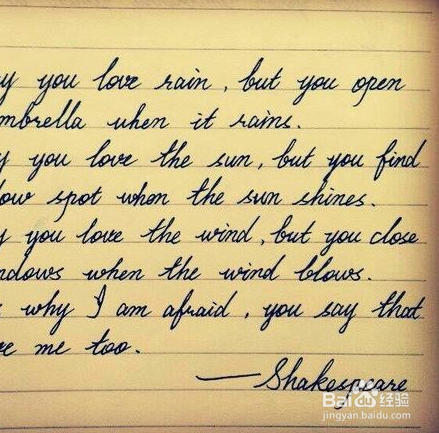 y you love rain, but you open
mbrella when it rains.
y you love the sun, but you find
dow spot when the sun shines.
y you love the wind, but you close
ndows when the wind blows.
why I am afraid, you say that
ve me too.
— Shakespeare
Baidu 经验
jingyan.baidu.com